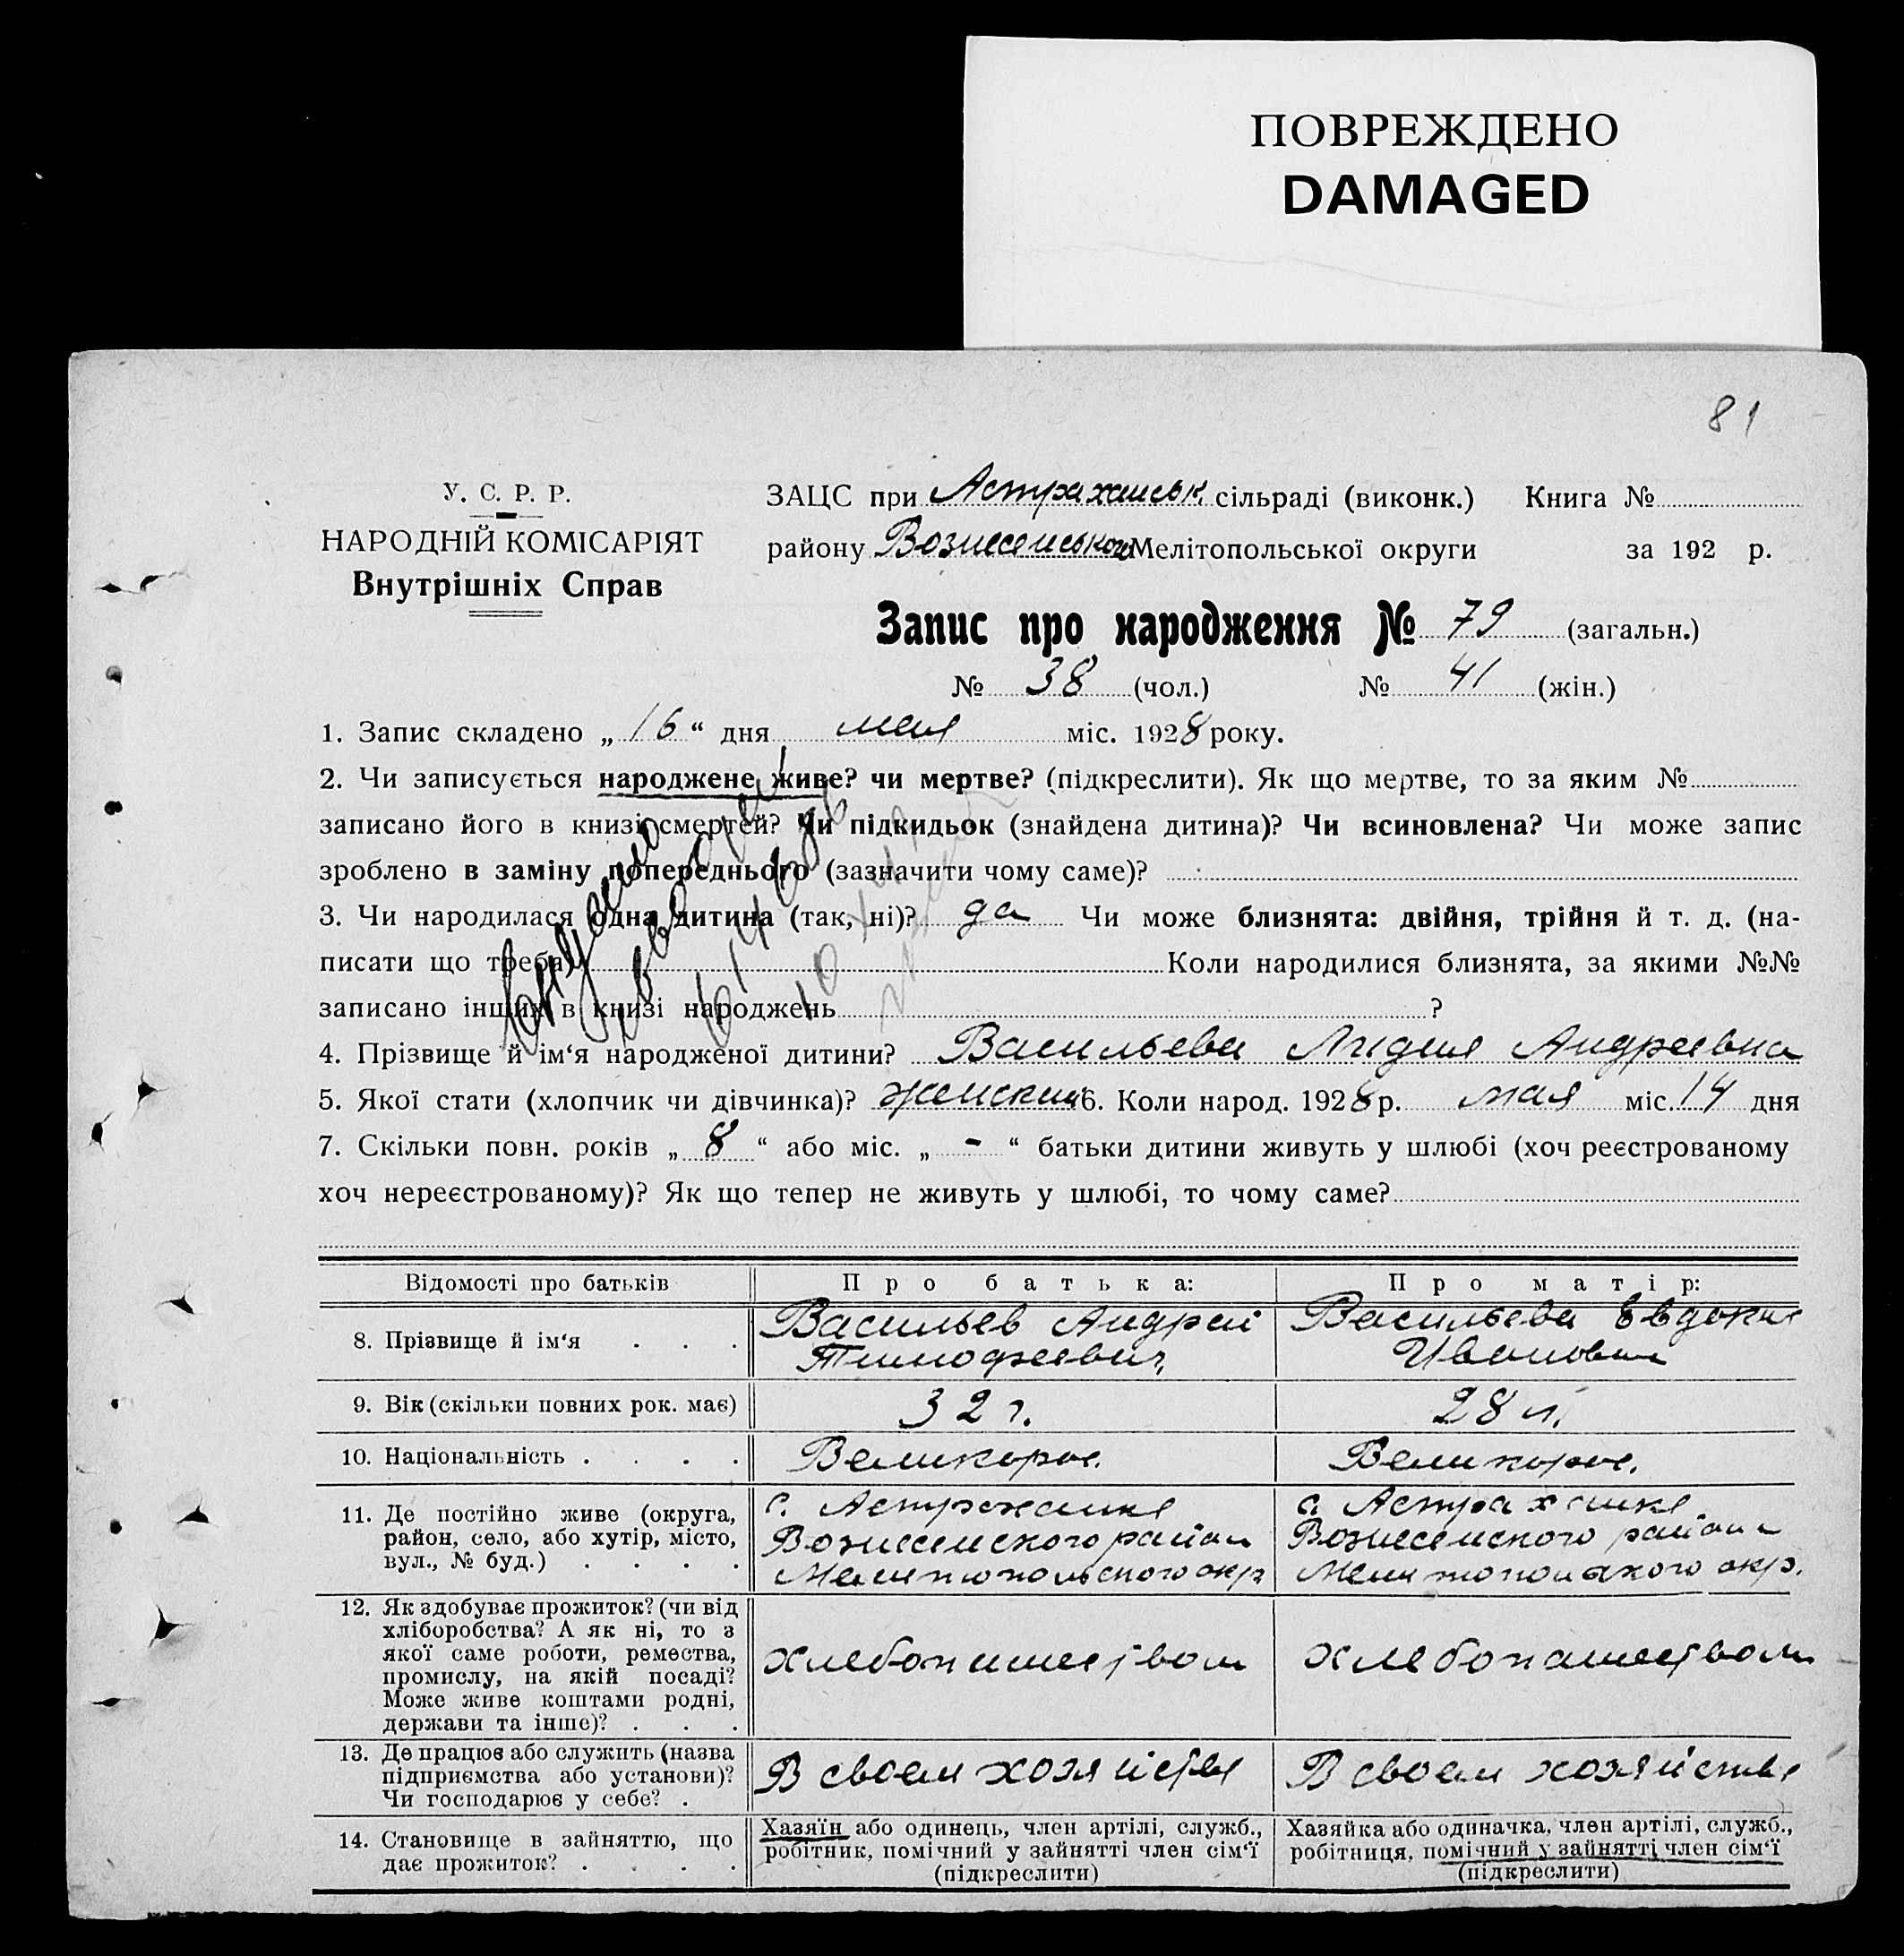 ПОВРЕЖДЕНО
DAMAGED
81
У. С. Р. Р.
НАРОДНІЙ КОМІСАРІЯТ
Внутрішніх Справ
ЗАЦС при Астраханськ. сільраді (виконк.) Книга №
району Вознесенського Мелітопольської округи за 192 р.
Запис про народження № 79 (загальн.)
№ 38 (чол.) № 41 (жін.)
1. Запис складено „ 16 “ дня мая міс. 1928 року.
2. Чи записується народжене живе? чи мертве? (підкреслити). Як що мертве, то за яким №
записано його в книзі смертей? Чи підкидьок (знайдена дитина)? Чи всиновлена? Чи може запис
зроблено в заміну попереднього (зазначити чому саме)?
3. Чи народилася одна дитина (так, ні)? да Чи може близнята: двійня, трійня й т. д. (на-
писати що треба) Коли народилися близнята, за якими №№
записано інших в книзі народжень ?
4. Прізвище й ім‘я народженої дитини? Васильева Лидия Андреевна
5. Якої стати (хлопчик чи дівчинка)? женский 6. Коли народ. 1928 р. мая міс. 14 дня
7. Скільки повн. років „ 8 “ або міс. „ - “ батьки дитини живуть у шлюбі (хоч реєстрованому
хоч нереєстрованому)? Як що тепер не живуть у шлюбі, то чому саме?
Видано
Відомості про батьків Про батька: Про матір:
8. Прізвище й ім‘я . . . Васильев Андрей Васильева Евдокия
Тимофеевич Ивановна
9. Вік (скільки повних рок. має) 32 г. 28 л.
10. Національність . . . . Великорос. Великорос.
11. Де постійно живе (округа,
район, село, або хутір, місто,
вул., № буд.) . . . .
с. Астраханка
Вознесенского района
Мелитопольского окр
с. Астраханка
Вознесенского района
Мелитопольского окр.
12. Як здобуває прожиток? (чи від
хліборобства? А як ні, то з
якої саме роботи, ремества,
промислу, на якій посаді?
Може живе коштами родні,
держави та інше)? . . .
хлебопашеством хлебопашеством
13. Де працює або служить (назва
підприємства або установи)?
Чи господарює у себе? .
В своем хозяйстве В своем хозяйстве
14. Становище в зайняттю, що
дає прожиток? . . . .
Хазяїн або одинець, член артілі, служб.,
робітник, помічний у зайнятті член сім‘ї
(підкреслити)
Хазяйка або одиначка, член артілі, служб.,
робітниця, помічний у зайнятті член сім‘ї
(підкреслити)